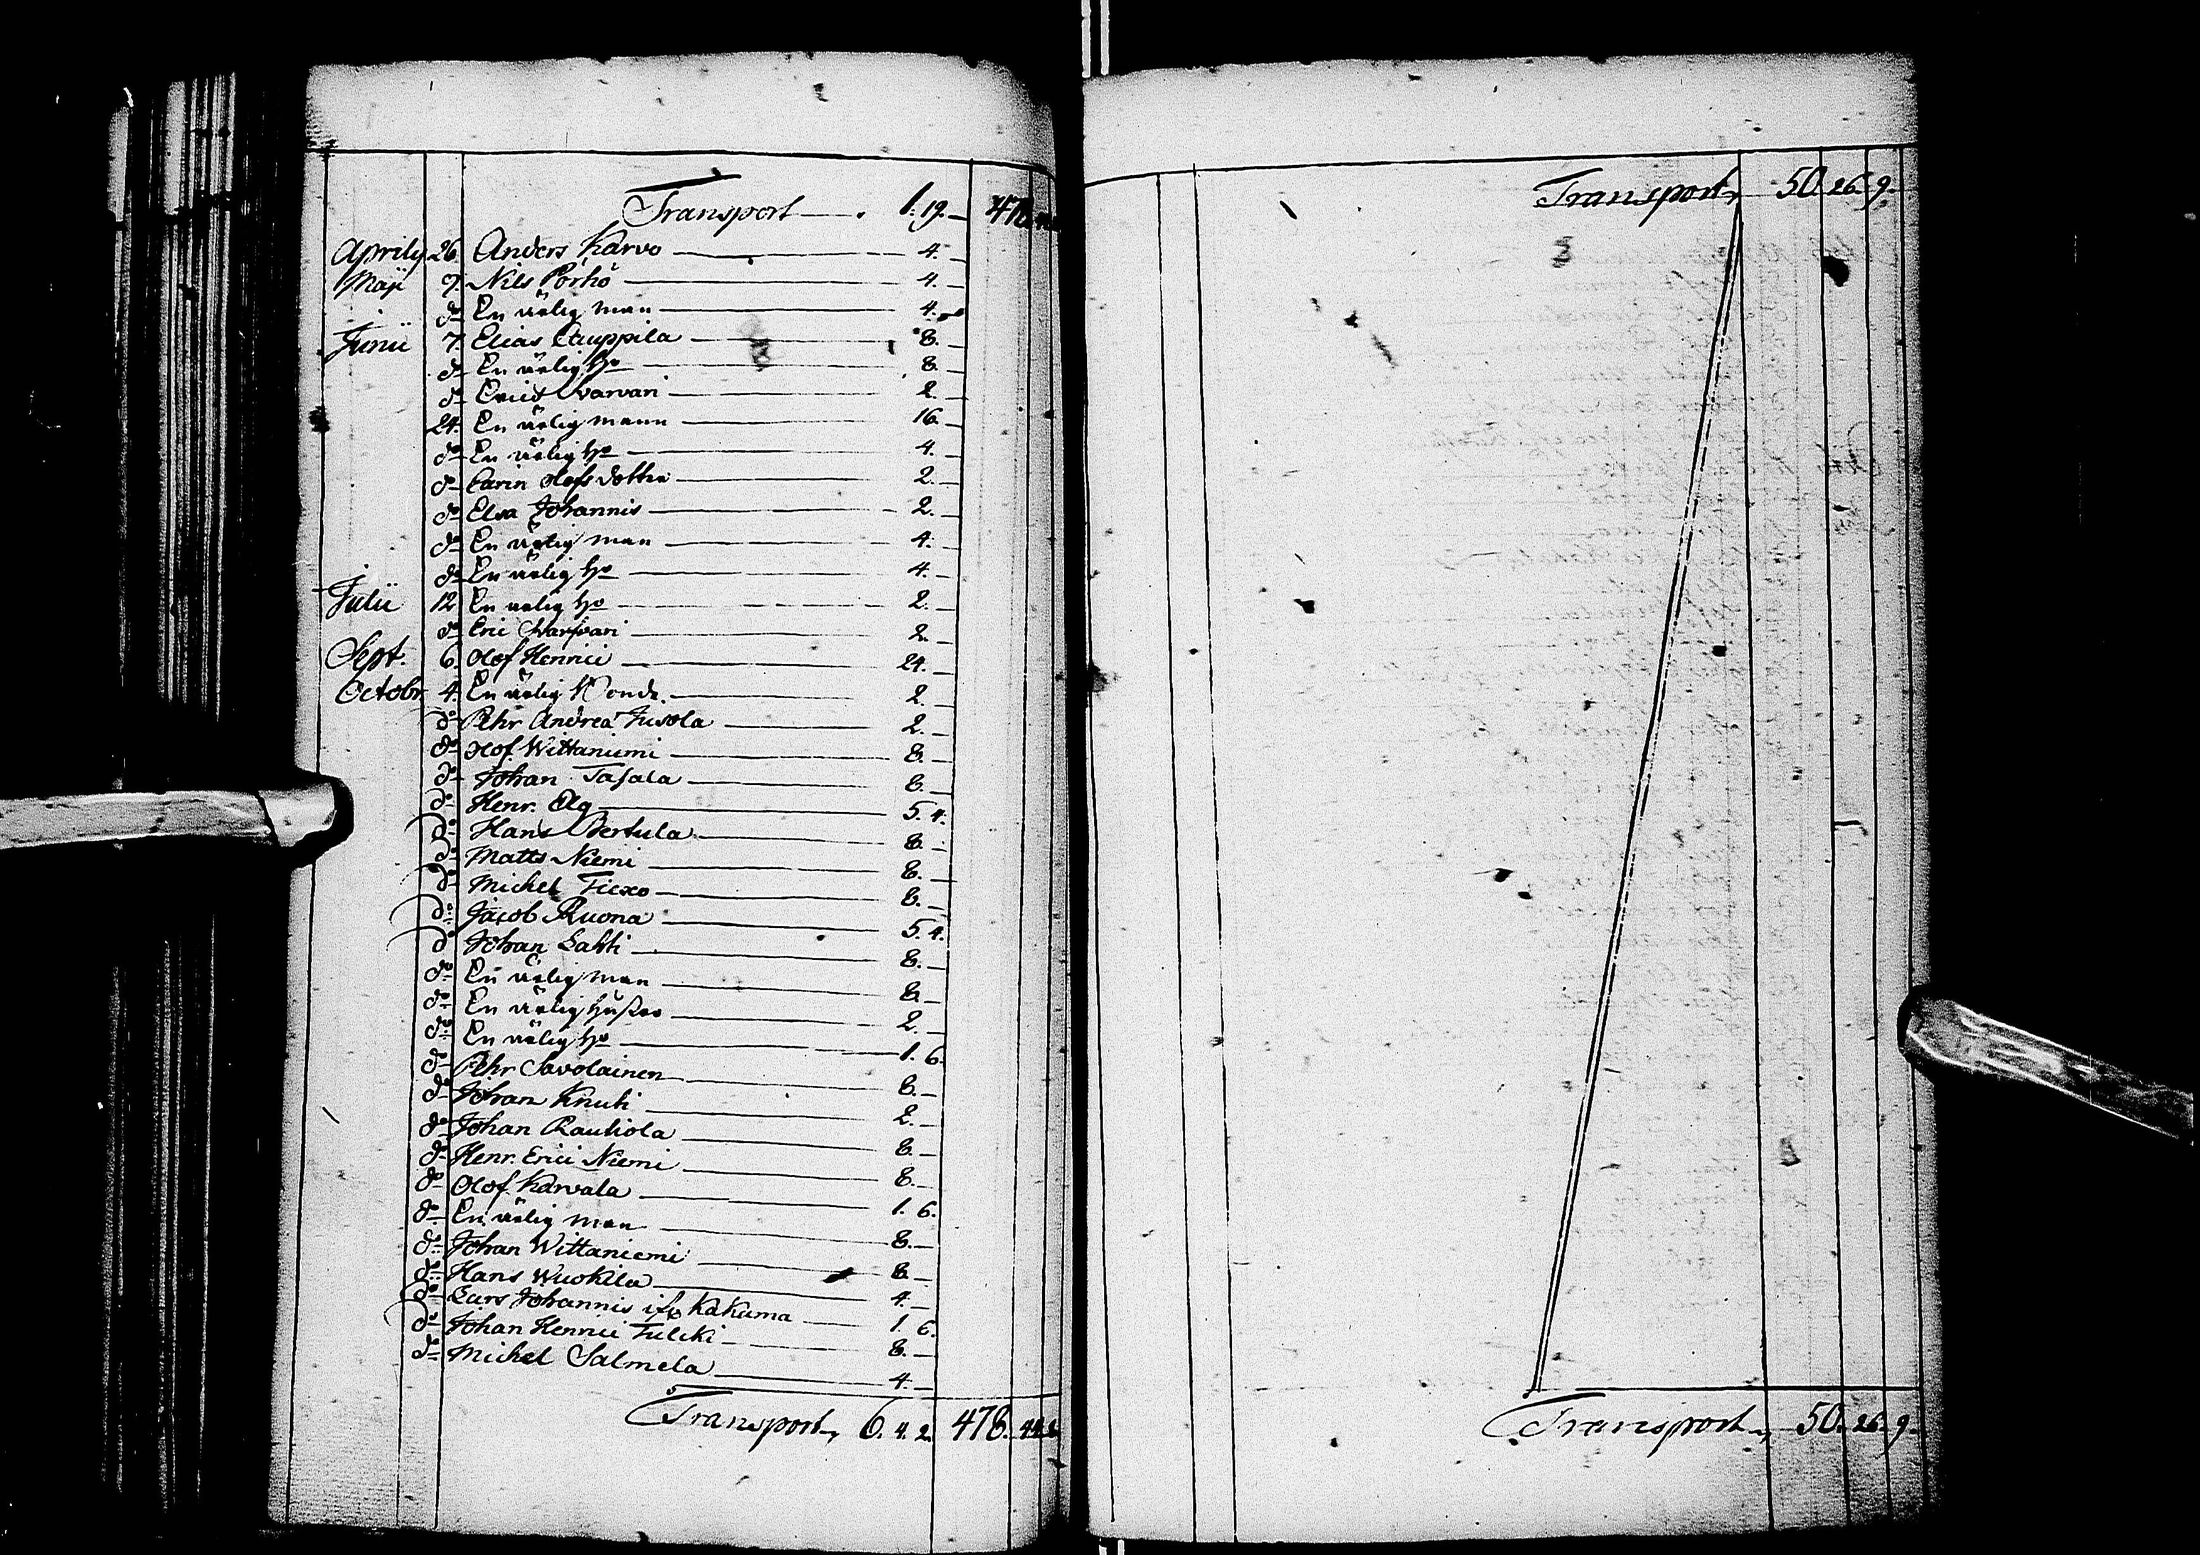 Transport — . 1. 19. — 478.
Aprily 26. Anders Karvo — 4. —
Maji 7. Nils Pörhö — 4. —
do En ärlig man — 4. —
Junii 7. Elias Auppila — 8. —
do En ärlig Ho — 8. —
do Erich Svarvari — 2. —
24. En ärlig mann — 16. —
do En ärlig Ho — 4. —
do Carin Olofs dotter — 2. —
do Elsa Johannis — 2. —
do En ärlig man — 4. —
do En ärlig Ho — 4. —
Julii 12 En ärlig Ho — 2. —
do Eric Swarfvari — 2. —
Sept. 6. Olof Henrici — 24. —
Octobr. 4. En ärlig Bonde. — 2. —
do Pehr Andreæ Jusola — 2. —
do Olof. Wittaniemi — 8. —
do Johan Tasala — 8. —
do Henr. Elg — 5. 4.
do Hans Pertula — 8. —
do Matts Niemi — 8. —
do Michel Fiexo — 8. —
do Jacob Ruona — 5. 4.
do Johan Lahti — 8. —
do En ärlig man — 8. —
do En ärlig — 2. —
do En ärlig Ho — 1. 6.
do Pehr Savolainen — 8. —
do Johan Knuti — 2. —
do Johan Rautiola — 8. —
do Henr. Erici Niemi — 8. —
do Olof Karvala — 1. 6.
do En ärlig man — 8. —
do Johan Wittaniemi — 8. —
do Hans Wuokila — 4. —
do Lars Johannis ifr Kakuma — 1. 6.
do Johan Henrici Tulcki — 8. —
do Michel Salmela — 4. —
Transport, 6. 4. 2. 478. 44.
Transport, 50. 26. 9.
Transport, 50. 26. 9.